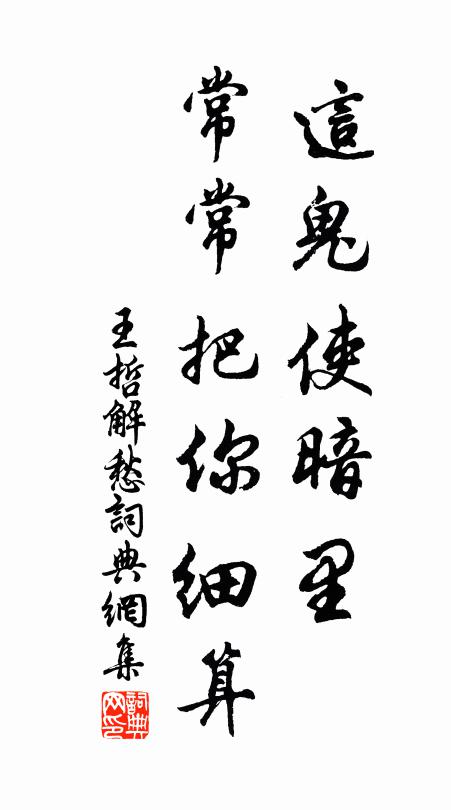 這鬼使暗里
常常把你細算
王哲解愁詞典網集
詞典網印